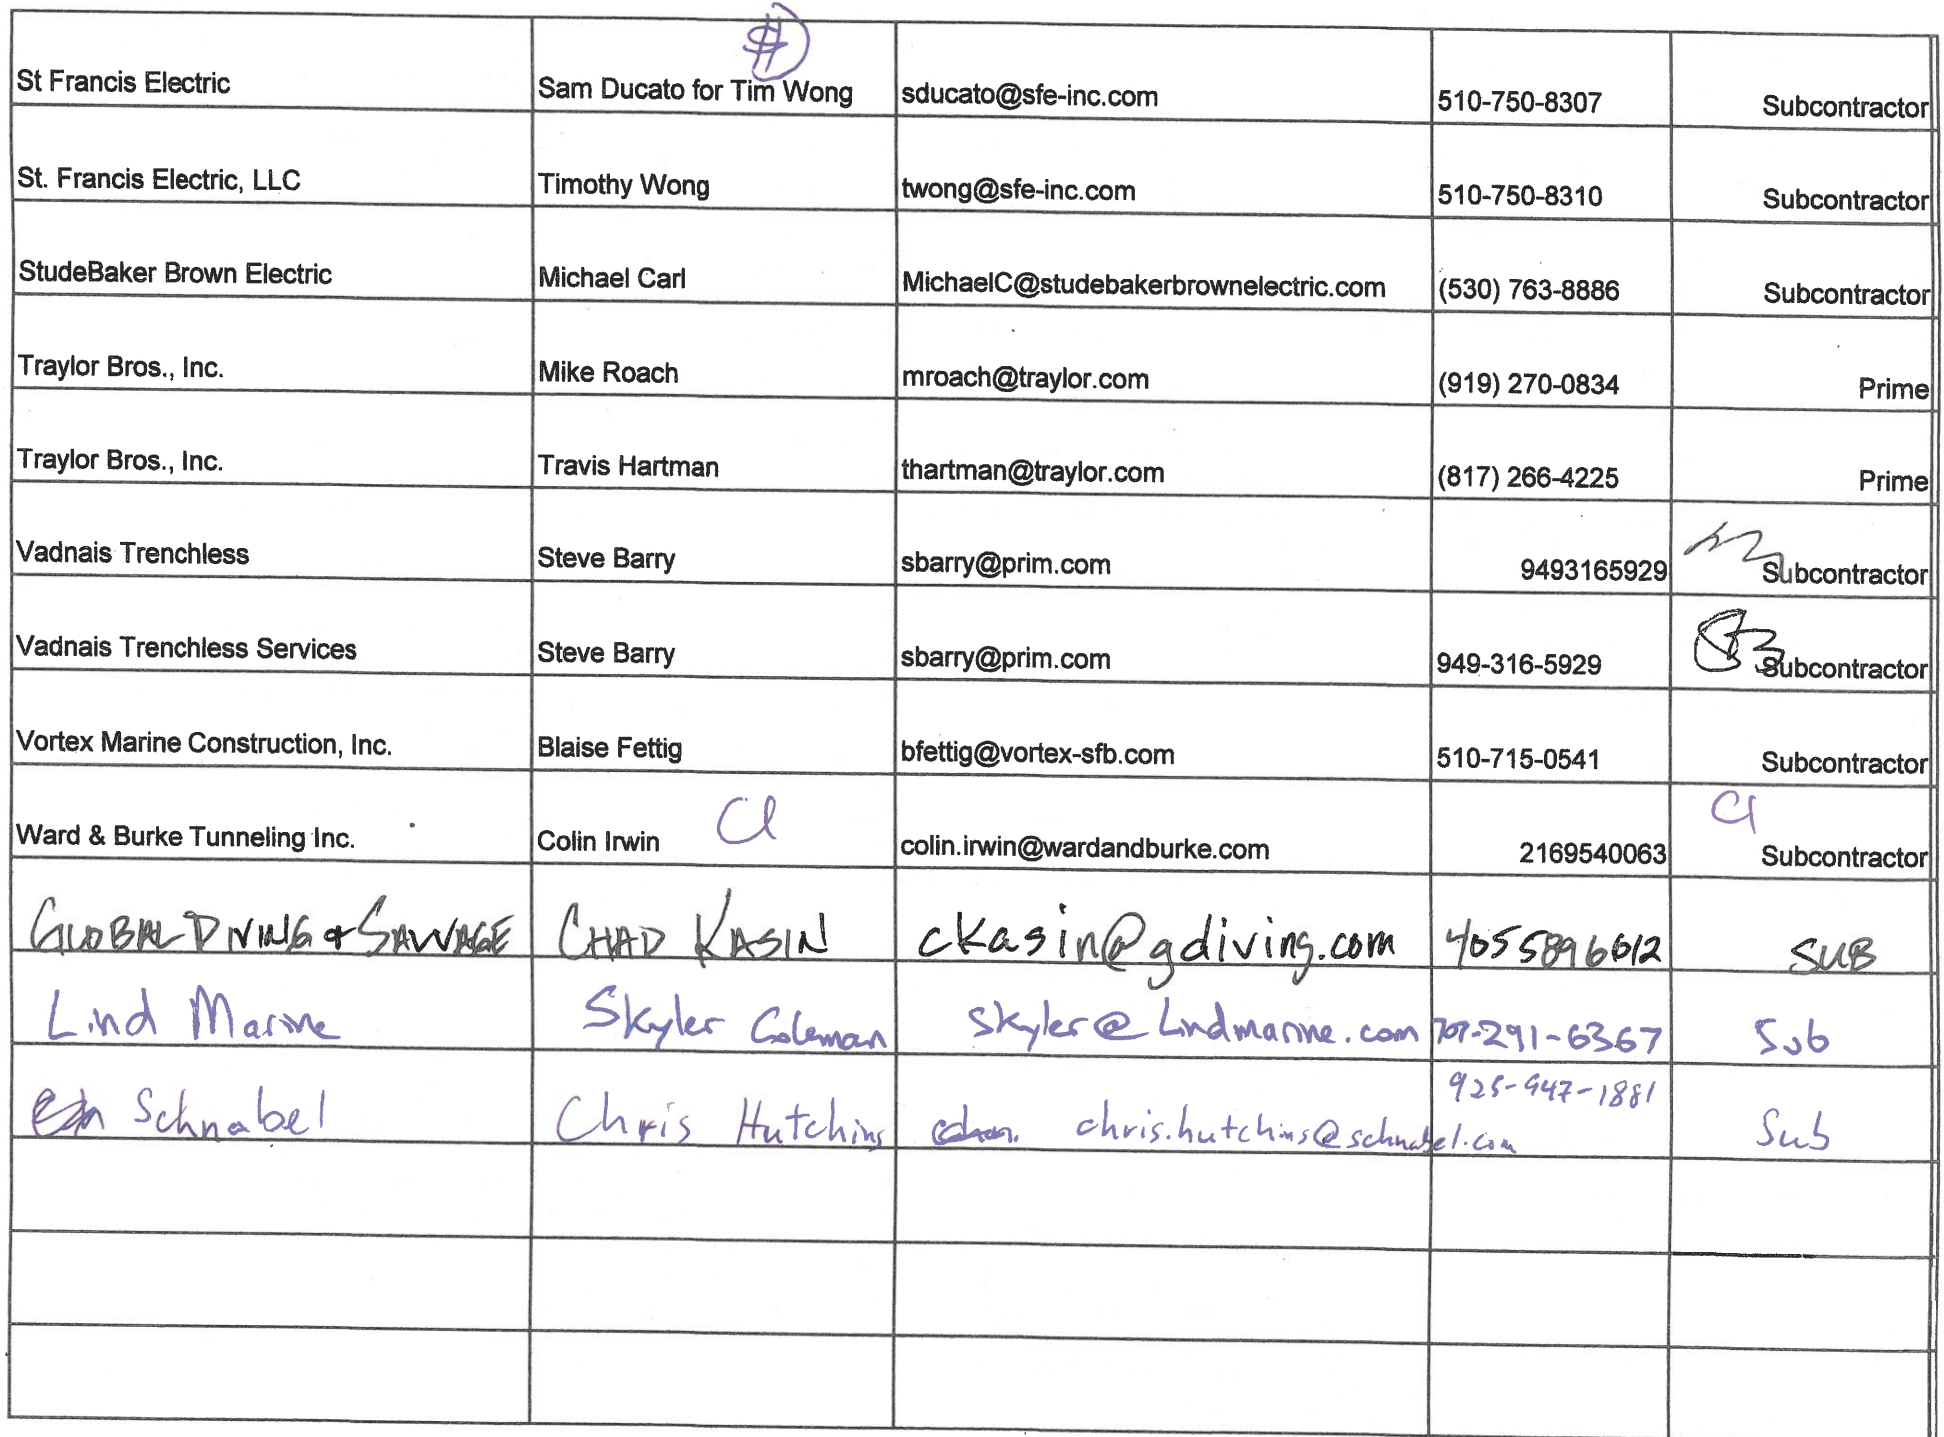 St Francis Electric Sam Ducato for Tim Wong sducato@sfe-inc.com 510-750-8307 Subcontractor
St. Francis Electric, LLC Timothy Wong twong@sfe-inc.com 510-750-8310 Subcontractor
StudeBaker Brown Electric Michael Carl MichaelC@studebakerbrownelectric.com (530) 763-8886 Subcontractor
Traylor Bros., Inc. Mike Roach mroach@traylor.com (919) 270-0834 Prime
Traylor Bros., Inc. Travis Hartman thartman@traylor.com (817) 266-4225 Prime
Vadnais Trenchless Steve Barry sbarry@prim.com 9493165929 Subcontractor
Vadnais Trenchless Services Steve Barry sbarry@prim.com 949-316-5929 Subcontractor
Vortex Marine Construction, Inc. Blaise Fettig bfettig@vortex-sfb.com 510-715-0541 Subcontractor
Ward & Burke Tunneling Inc. Colin Irwin CI colin.irwin@wardandburke.com 2169540063 CI Subcontractor
GLOBAL DIVING & SALVAGE CHAD KASIN ckasin@gdiving.com 4055896012 SUB
Lind Marine Skyler Coleman skyler@Lindmarine.com 707-291-6367 Sub
Schnabel Chris Hutchins chris.hutchins@schnabel.com 925-947-1881 Sub